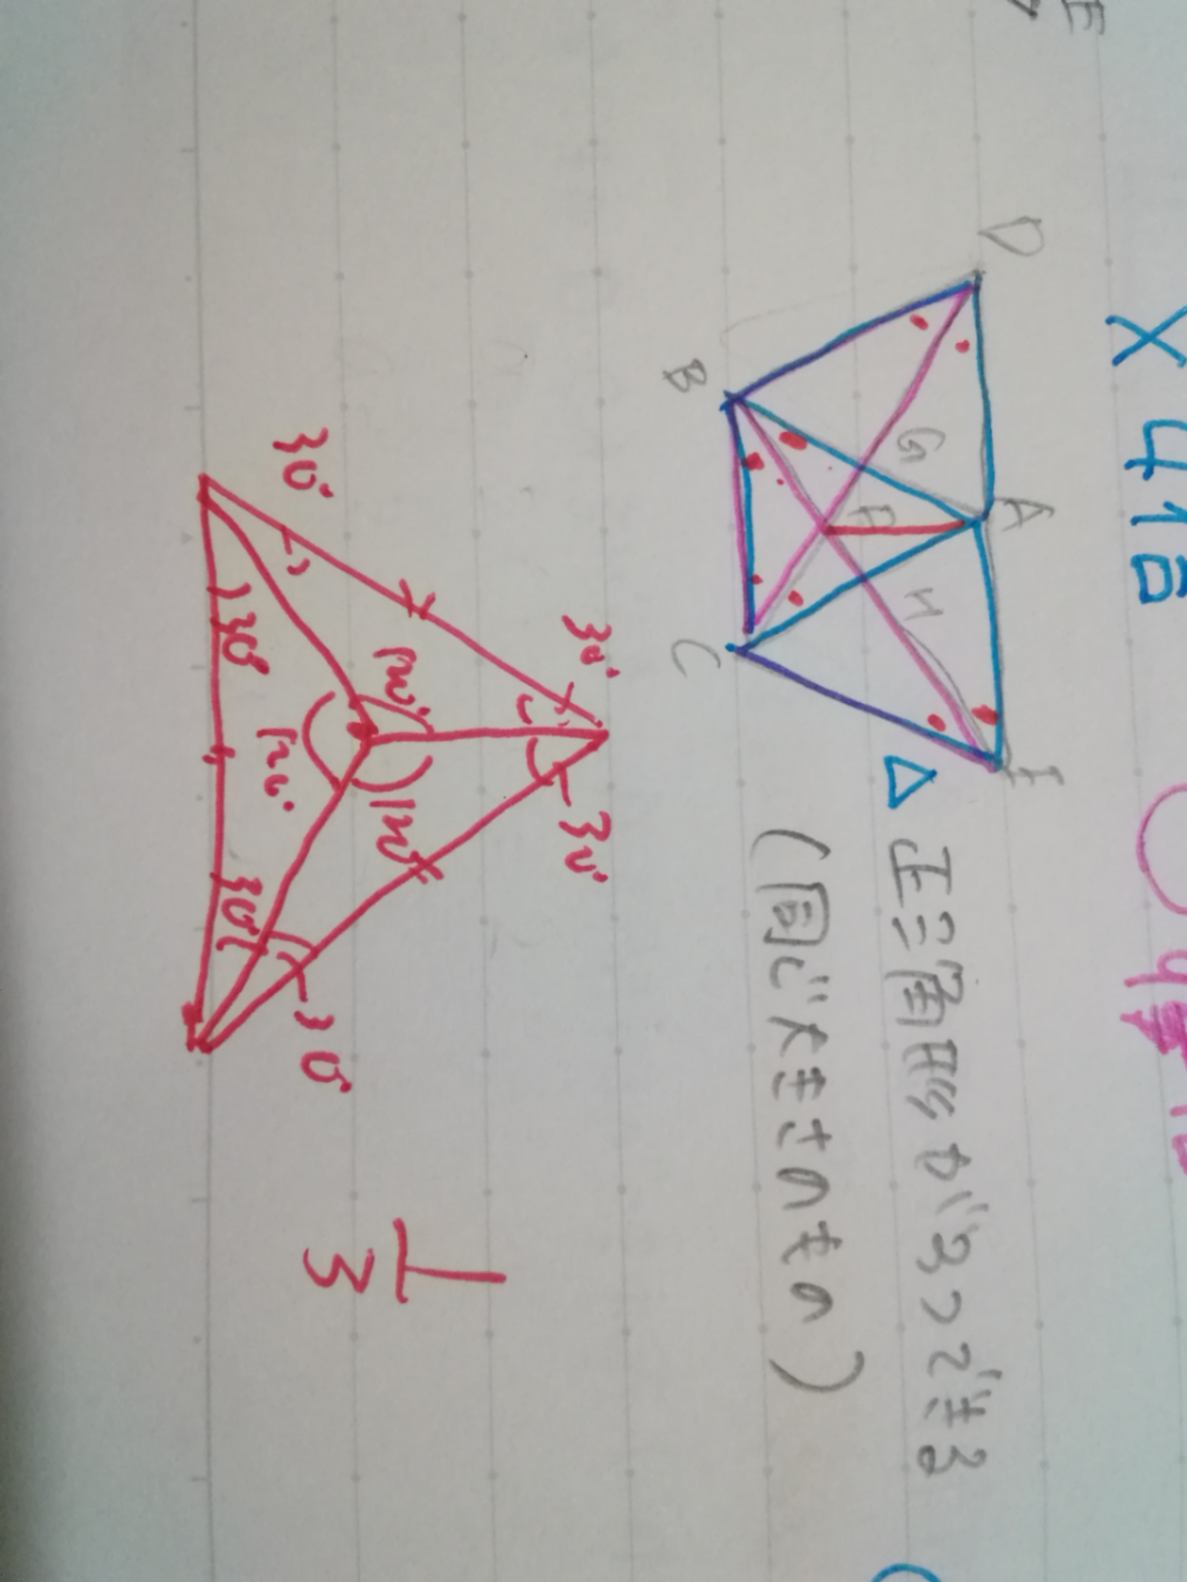 E
× 41 合
D
A
E
G
H
F
B
C
△ 正三角形が3つできる
(同じ大きさのもの)
30° 30°
120° 120°
30° 30°
120°
30° 30°
1
3